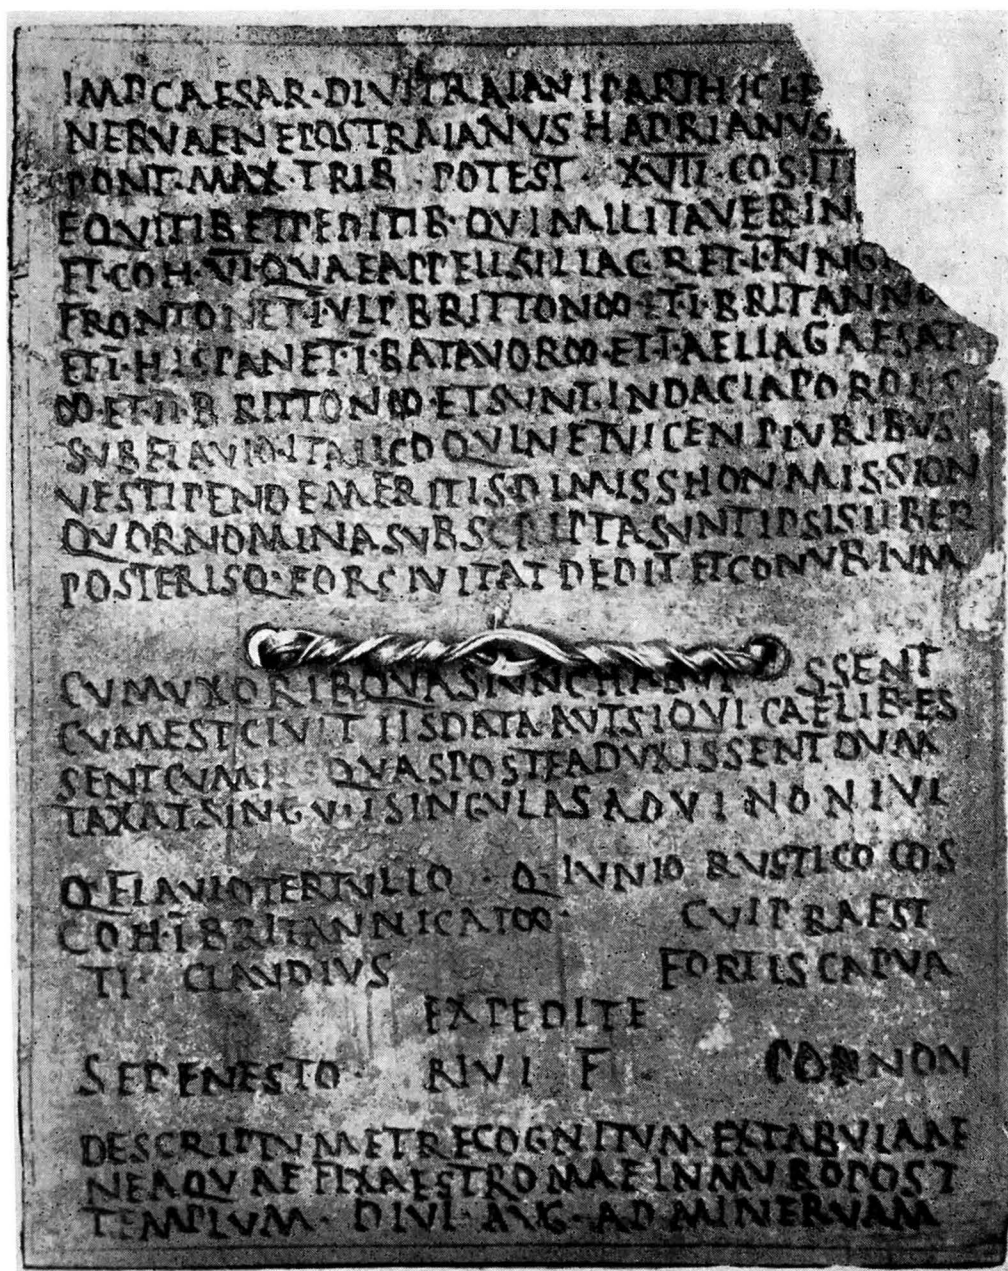 IMP CAESAR · DIVI TRAIANI PARTHICI F
NERVAE NEPOS TRAIANVS HADRIANVS
PONT · MAX · TRIB · POTEST · XVII · COS · III
EQVITIB ET PEDITIB · QVI MILITAVER IN
ET · COH · VI · QVAE APPELL SILIAC R ET · I · TVNG
FRONTON ET · I · VLP BRITTON ∞ · ET · I · BRITANN
ET · I · HISPAN ET · I · BATAVOR ∞ · ET · I · AELIA GAESAT
∞ · ET · II · BRITTON ∞ · ET SVNT · IN DACIA POROLIS
SVB FLAVIO ITALICO QVIN ET VICEN PLVRIBVS
VE STIPEND EMERITIS · DIMISS HON MISSION
QVOR NOMINA SVBSCRIPTA SVNT IPSIS LIBER
POSTERISQ · EOR CIVITAT DEDIT ET CONVBIVM
CVM VXORIB QVAS TVNC HABVI SSENT
CVM EST CIVIT IIS DATA AVT SI QVI CAELIB · ES
SENT CVM IIS QVAS POSTEA DVXISSENT DVM
TAXAT SINGVLI SINGVLAS A D VI NON IVL
Q FLAVIO TERTVLLO · Q · IVNIO RVSTICO COS
COH · I BRITANNICAE ∞ · CVI PRAEST
TI · CLAVDIVS FORTIS CAPVA
EX PEDITE
SEPENESTO · RIVI F · PANNON
DESCRIPTVM ET RECOGNITVM EX TABVLA AE
NEA QVAE FIXA EST ROMAE IN MVRO POST
TEMPLVM · DIVI · AVG · AD MINERVAM